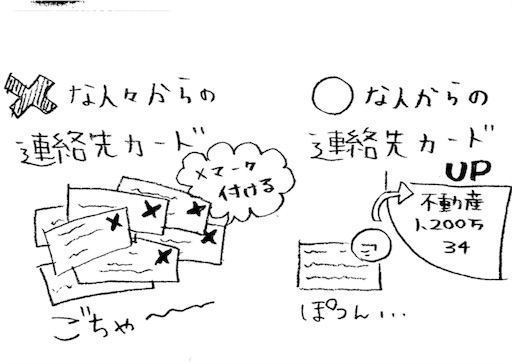 ✖な人々からの
連絡先カード
×マーク
付ける
ごちゃ〜
○な人からの
連絡先カード
UP
不動産
1,200万
34
ぽつん...